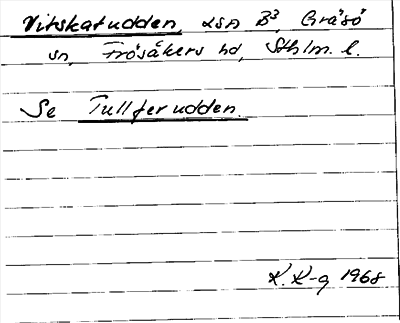 Vitskatudden, usn B³, Gräsö
sn, Frösåkers hd, Sthlm. l.
Se Tullferudden.
K. K-g 1968